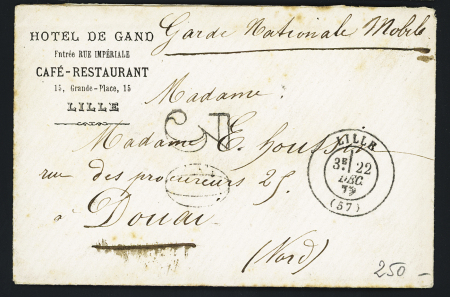 HOTEL DE GAND
Entrée RUE IMPÉRIALE
CAFÉ-RESTAURANT
15, Grande-Place, 15
LILLE
Garde Nationale Mobile
Madame
Madame E.
rue des procureurs 25
à Douai
(Nord)
LILLE
3E 22
DÉC.
(57)
250 -